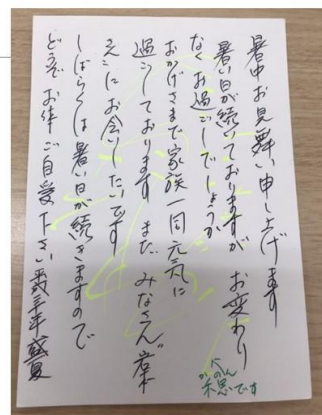 暑中お見舞い申し上げます
暑い日が続いておりますが お変わり
なくお過ごしでしょうか
おかげさまで家族一同元気に
過ごしております また みなさんで
にお会いしたいです
しばらくは暑い日が続きますので
どうぞ お体ご自愛下さい 盛夏
です